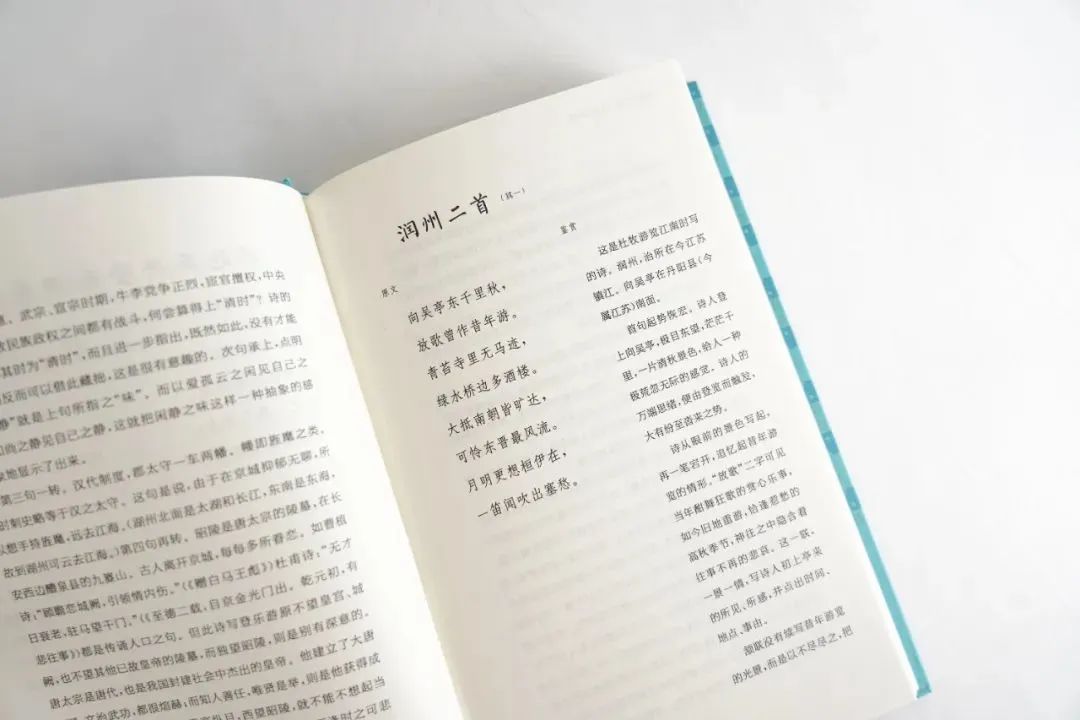 武宗、宣宗时期，牛李党争正烈，宦官擅权，中央
民族政权之间都有战斗，何尝算得上“清时”？诗的
其时为“清时”，而且进一步指出，既然如此，没有才能
反而可以借此藏拙，这是很有意趣的。次句承上，点明
静”就是上句所指之“味”。而以爱孤云之闲见自己之
和尚之静见自己之静，这就把闲静之味这样一种抽象的感
地显示了出来。
第三句一转。汉代制度，郡太守一车两幡。幡即旌麾之类。
时刺史略等于汉之太守。这句是说，由于在京城抑郁无聊，所
以想手持旌麾，远去江海。（湖州北面是太湖和长江，东南是东海，
故到湖州可云去江海。）第四句再转。昭陵是唐太宗的陵墓，在长
安西边醴泉县的九嵕山。古人离开京城，每每多所眷恋。如曹植
诗：“顾瞻恋城阙，引领情内伤。”（《赠白马王彪》）杜甫诗：“无才
日衰老，驻马望千门。”（《至德二载，自京金光门出，乾元初，有
悲往事》）都是传诵人口之句。但此诗写登乐游原不望皇宫、城
阙，也不望其他已故皇帝的陵墓，而独望昭陵，则是别有深意的。
唐太宗是唐代，也是我国封建社会中杰出的皇帝。他建立了大唐
文治武功，都很煊赫；而知人善任，唯贤是举，则是他获得成
纵目，西望昭陵，就不能不想起当
逢时之可悲
润州二首（其一）
原文
向吴亭东千里秋，
放歌曾作昔年游。
青苔寺里无马迹，
绿水桥边多酒楼。
大抵南朝皆旷达，
可怜东晋最风流。
月明更想桓伊在，
一笛闻吹出塞愁。
鉴赏
这是杜牧游览江南时写
的诗。润州，治所在今江苏
镇江。向吴亭在丹阳县（今
属江苏）南面。
首句起势恢宏。诗人登
上向吴亭，极目东望，茫茫千
里，一片清秋景色，给人一种
极荒忽无际的感觉。诗人的
万端思绪，便由登览而触发，
大有纷至沓来之势。
诗从眼前的景色写起，
再一笔宕开，追忆起昔年游
览的情形。“放歌”二字可见
当年酣舞狂歌的赏心乐事，
如今旧地重游，恰逢惹愁的
高秋季节，神往之中隐含着
往事不再的悲哀。这一联，
一景一情，写诗人初上亭来
的所见、所感，并点出时间、
地点、事由。
颔联没有续写昔年游览
的光景，而是以不尽尽之，把